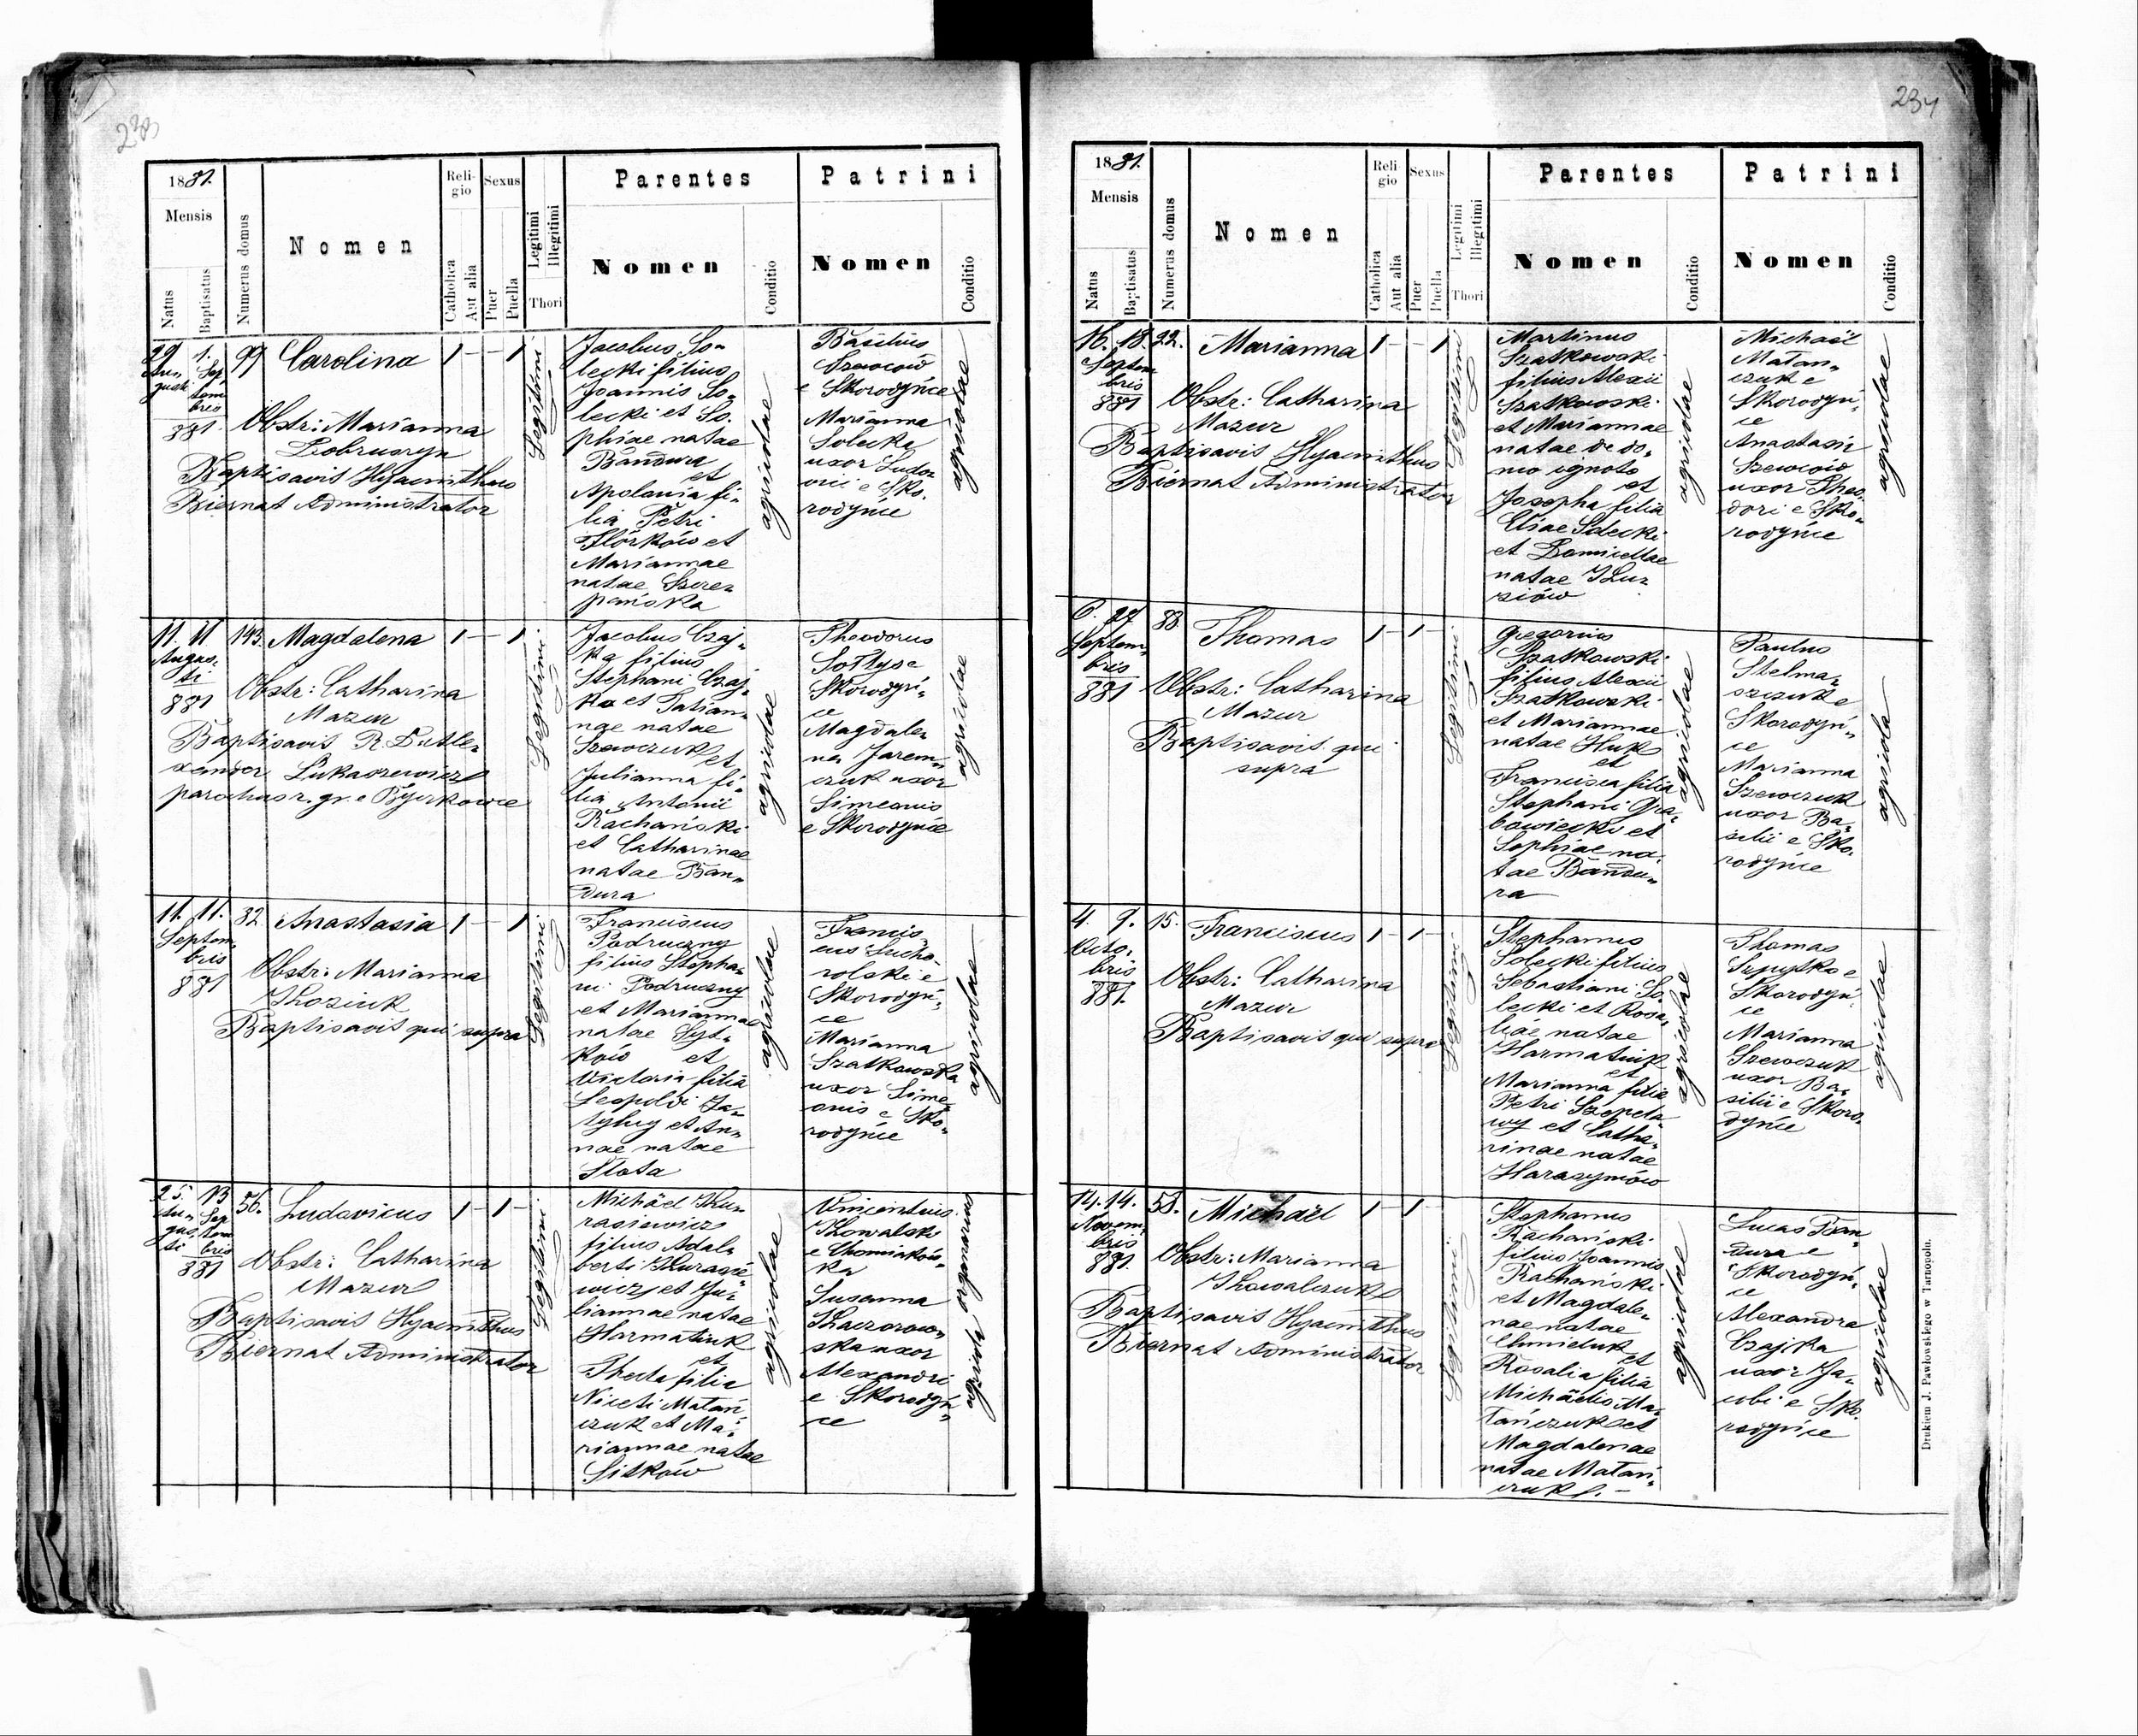 234
1881.
Mensis
Natus
Baptisatus
Numerus domus
Nomen
Religio
Catholica
Aut alia
Sexus
Puer
Puella
Legitimi
Illegitimi
Thori
Parentes
Nomen
Conditio
Patrini
Nomen
Conditio
29 Augusti
1. Septembris
881
99
Carolina
1 – – 1
Obstr: Marianna
Baptisavit Hyacinthus
Biernat Administrator
Legitimi
Jacobus So-
lecki filius
Joannis So-
lecki et So-
phiae natae
Bandura
et
Apolonia fi-
lia Petri
Flórków et
Mariannae
natae Szcze-
pańska
agricolae
Basilius
Szewców
e Skorodyńce
Marianna
Solecka
uxor Ludo-
vici e Sko-
rodyńce
agricolae
11. 11
Augus-
ti
881
193.
Magdalena
1 – – 1
Obstr: Catharina
Mazur
Baptisavit R. D. Ale-
xander Łukaszewicz
parochus r. gr. e Byczkowce
Legitimi
Jacobus Czaj-
ka filius
Stephani Czaj-
ka et Tatian-
nae natae
Szewczuk et
Julianna fi-
lia Antonii
Rachański
et Catharinae
natae Ban-
dura
agricolae
Theodorus
Sołtys e
Skorodyń-
ce
Magdale-
na Jarem-
czuk uxor
Simeonis
e Skorodyńce
agricolae
11. 11.
Septem-
bris
881
32
Anastasia
1 – – 1
Obstr: Marianna
Koziuk
Baptisavit qui supra
Legitimi
Franciscus
Podruczny
filius Stepha-
ni Podruczny
et Mariannae
natae Syt-
ków et
Victoria filia
Leopoldi Za-
tylny et An-
nae natae
Słota
agricolae
Francis-
cus Sucho-
rolski e
Skorodyń-
ce
Marianna
Szatkowska
uxor Sime-
onis e Sko-
rodyńce
agricolae
25. Augusti
13 Septembris
881
56.
Ludovicus
1 – 1 –
Obstr: Catharina
Mazur
Baptisavit Hyacinthus
Biernat Administrator
Legitimi
Michäel Kura-
rasiewicz
filius Adal-
berti Kurasie-
wicz et Ju-
liannae natae
Harmatiuk
et
Thecla filia
Niceti Matań-
czuk et Ma-
riannae natae
Sitków
agricolae
Vincentius
Kowalski
e Chomiaków-
ka
Susanna
Kaczorow-
ska uxor
Alexandri
e Skorodyń-
ce
agricola organarius
234
1881.
Mensis
Natus
Baptisatus
Numerus domus
Nomen
Religio
Catholica
Aut alia
Sexus
Puer
Puella
Legitimi
Illegitimi
Thori
Parentes
Nomen
Conditio
Patrini
Nomen
Conditio
16. 18.
Septem-
bris
881
22.
Marianna
1 – – 1
Obstr: Catharina
Mazur
Baptisavit Hyacinthus
Biernat Administrator
Legitimi
Martinus
Szatkowski
filius Alexii
Szatkowski
et Mariannae
natae de do-
mo ignoto
et
Josepha filia
Eliae Solecki
et Domicellae
natae Klu-
ziów
agricolae
Michäel
Matan-
czuk e
Skorodyń-
ce
Anastasia
Szewców
uxor Theo-
dori e Sko-
rodyńce
agricolae
6. 27
Septem-
bris
881
88
Thomas
1 – 1 –
Obstr: Catharina
Mazur
Baptisavit qui
supra
Legitimi
Gregorius
Szatkowski
filius Alexii
Szatkowski
et Mariannae
natae Huk
et
Francisca filia
Stephani Gra-
bowiecki et
Sophiae na-
tae Bandu-
ra
agricolae
Paulus
Stelma-
szczuk e
Skorodyń-
ce
Marianna
Szewczuk
uxor Ba-
silii e Sko-
rodyńce
agricola
4. 9.
Octo-
bris
881.
15.
Franciscus
1 – 1 –
Obstr: Catharina
Mazur
Baptisavit qui supra
Legitimi
Stephanus
Solecki filius
Sebastiani So-
lecki et Rosa-
liae natae
Harmatiuk
et
Marianna filia
Petri Szepeta-
wy et Catha-
rinae natae
Harasymów
agricolae
Thomas
Szpytko e
Skorodyń-
ce
Marianna
Szewczuk
uxor Ba-
silii e Skoro-
dyńce
agricolae
14. 14.
Novem-
bris
881.
58.
Michäel
1 – 1
Obstr: Marianna
Kowalczuk
Baptisavit Hyacinthus
Biernat Administrator
Legitimi
Stephanus
Rachański
filius Joannis
Rachański
et Magdale-
nae natae
Chmieluk et
Rosalia filia
Michäelis Ma-
tańczuk et
Magdalenae
natae Matań-
czuk. –
agricolae
Lucas Ban-
dura e
Skorodyń-
ce
Alexandra
Czajka
uxor Ja-
cobi e Sko-
rodyńce
agricolae
Drukiem J. Pawłowskiego w Tarnopolu.